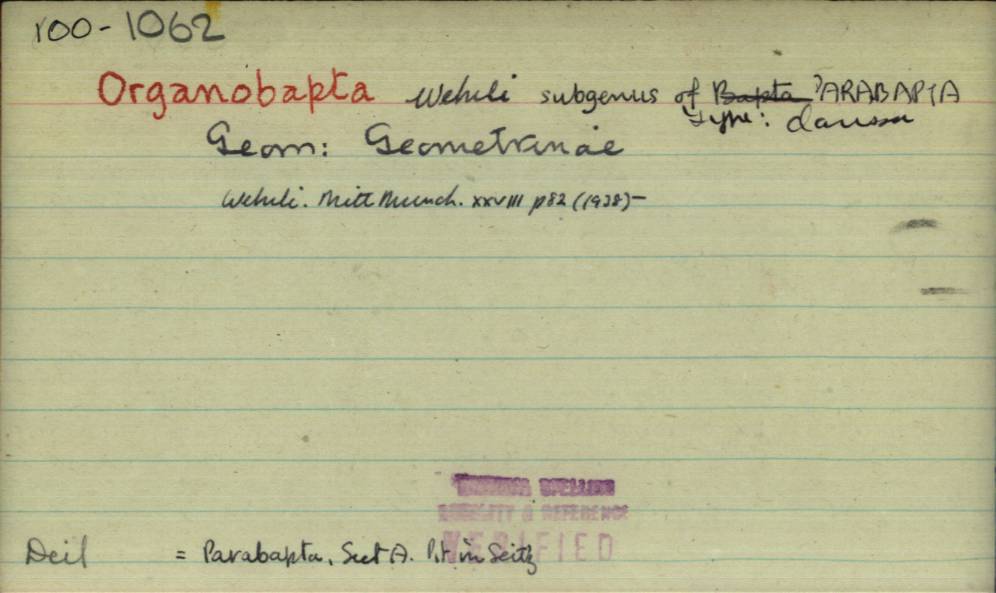 100-1062
Organobapta Wehrli subgenus of Bapta PARABAPTA
Type: clarissa
Geom: Geometrinae
Wehrli. Mitt Munch. XXVIII p82 (1938)-
PRIORITY & REFERENCE
VERIFIED
Deil = Parabapta, Sect A. Pt in Seitz